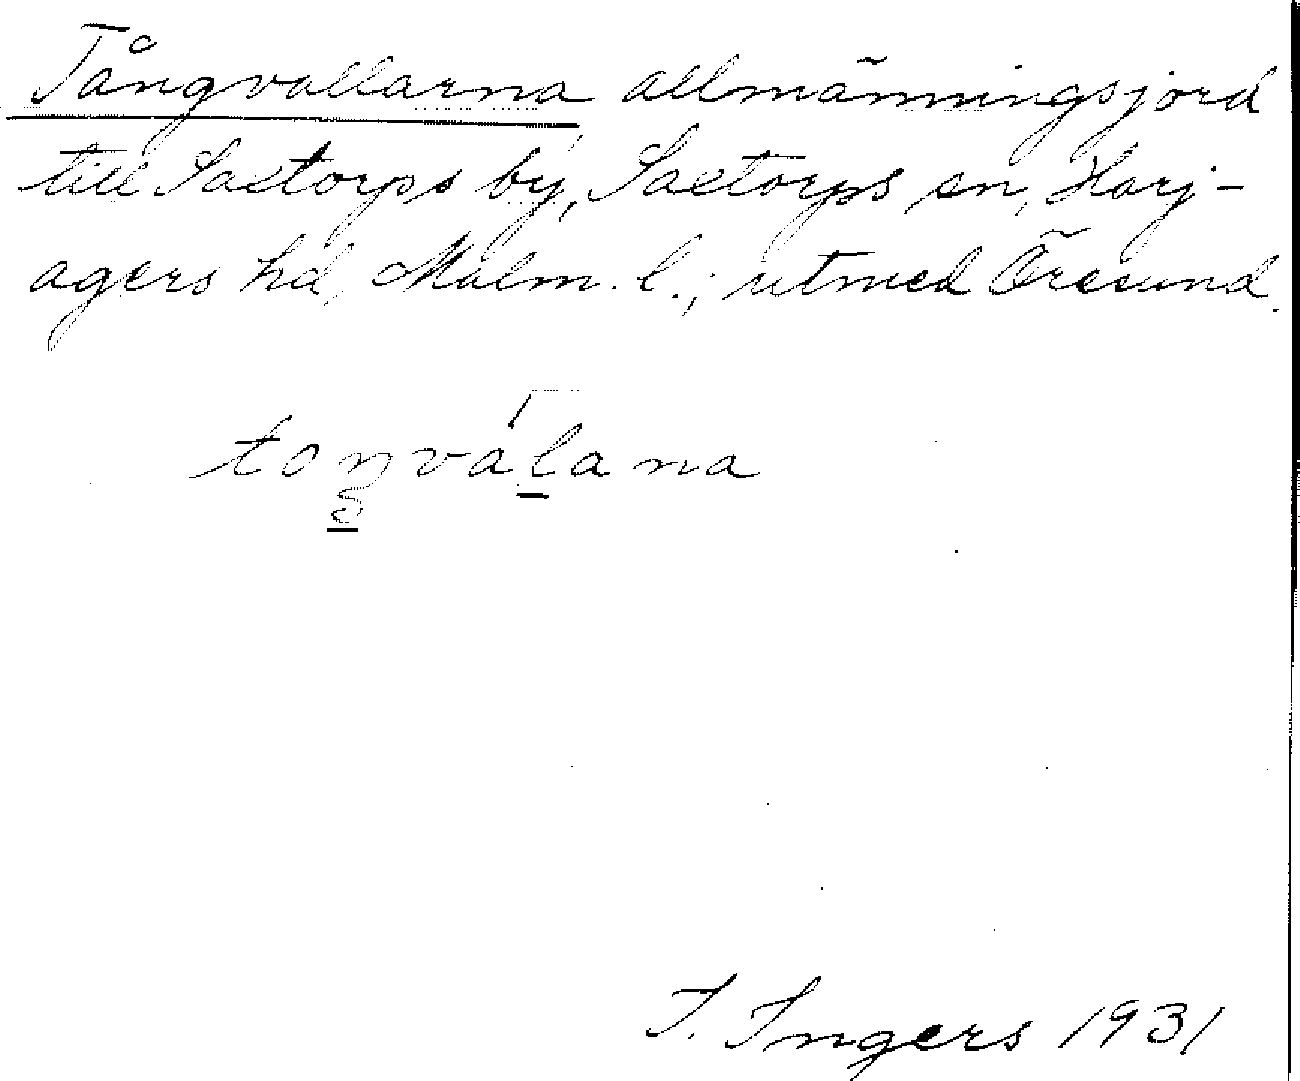 Tångvallarna allmänningsjord
till Saxtorps by, Saxtorps sn, Harj-
agers hd, Malm. l.; utmed Öresund.
toŋválana
I. Ingers 1931